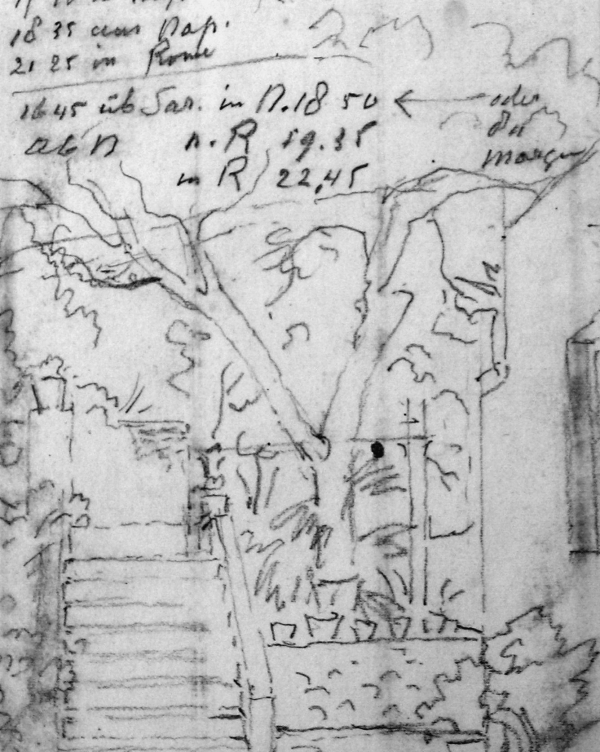 18 35 aus Nap.
21 25 in Rom
16 45 üb Sar. in N. 18 50 ← oder
ab N n. R 19.35 Da
in R 22,45 morgen